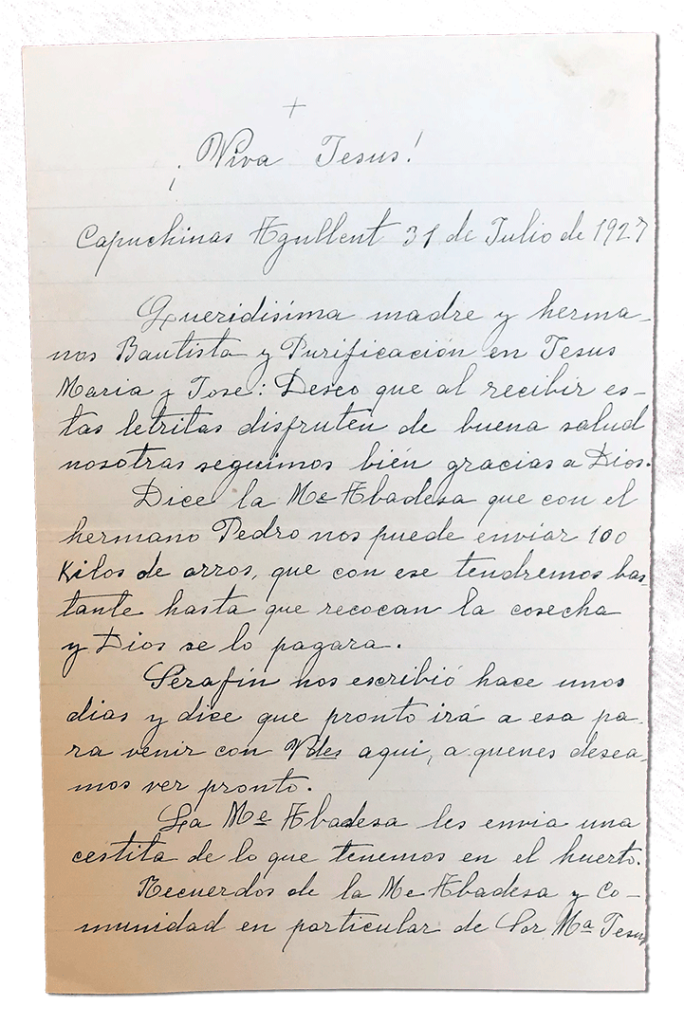 +
¡Viva Jesus!
Capuchinas Agullent 31 de Julio de 1927
Queridisima madre y herma-
nos Bautista y Purificación en Jesus
Maria y José: Deseo que al recibir es-
tas letritas disfruten de buena salud
nosotras seguimos bién gracias a Dios.
Dice la Me Abadesa que con el
hermano Pedro nos puede enviar 100
Kilos de arros, que con ese tendremos bas
tante hasta que recocan la cosecha
y Dios se lo pagara.
Serafín nos escribió hace unos
dias y dice que pronto irá a esa pa-
ra venir con Vdes aqui, a quenes desea-
mos ver pronto.
La Me Abadesa les envia una
cestita de lo que tenemos en el huerto.
Recuerdos de la Me Abadesa y Co-
munidad en particular de Sor Mª Jesus